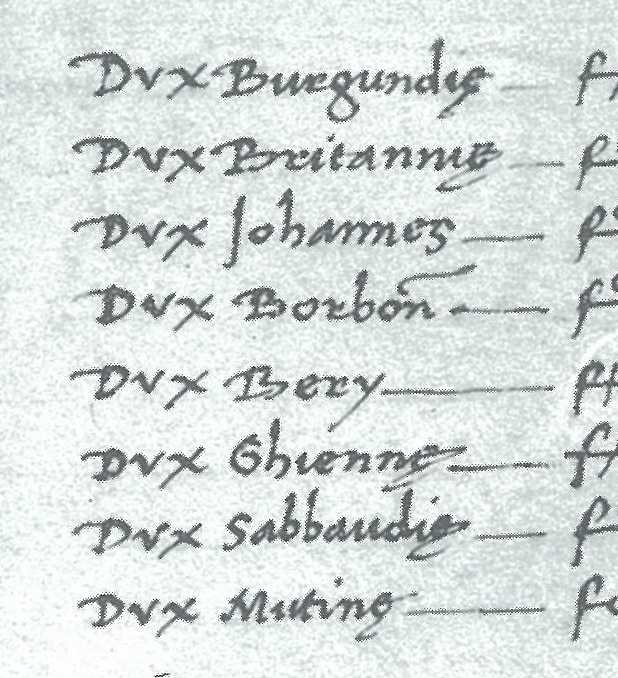 Dvx Burgundię — f
Dvx Britannię — f
Dvx Johannes — f
Dvx Borbon̄ — f
Dvx Bery — f
Dvx Ghienne — f
Dvx Sabbaudię — f
Dvx Mutinę — f